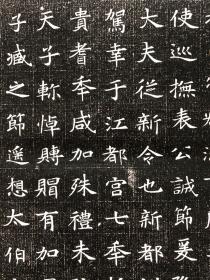 使巡撫表公誠節爰
大夫從新令也新都
駕幸于江都宮七秊
貴耆秊咸加殊禮未
天子軫悼賻賵有加
子臧之節遥想大伯